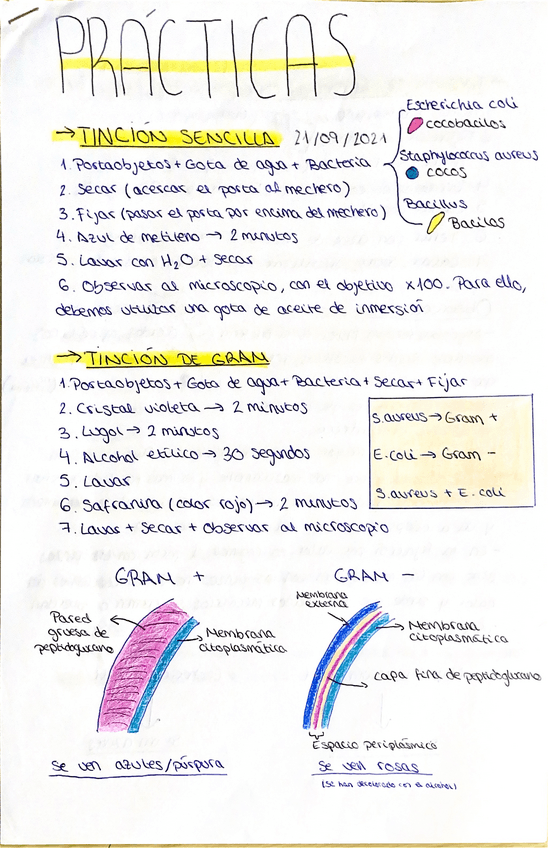 PRÁCTICAS
→ TINCIÓN SENCILLA 21/09/2021
1. Portaobjetos + Gota de agua + Bacteria
2. Secar (acercar el porta al mechero)
3. Fijar (pasar el porta por encima del mechero)
4. Azul de metileno → 2 minutos
5. Lavar con H₂O + secar
6. Observar al microscopio, con el objetivo x100. Para ello,
debemos utilizar una gota de aceite de inmersión
Escherichia coli
cocobacilos
Staphylococcus aureus
cocos
Bacillus
Bacilos
→ TINCIÓN DE GRAM
1. Portaobjetos + Gota de agua + Bacteria + Secar + Fijar
2. Cristal violeta → 2 minutos
3. Lugol → 2 minutos
4. Alcohol etílico → 30 segundos
5. Lavar
6. Safranina (color rojo) → 2 minutos
7. Lavar + Secar + Observar al microscopio
S. aureus → Gram +
E. coli → Gram -
S. aureus + E. coli
GRAM +
Pared
gruesa de
peptidoglucano
Membrana
citoplasmática
se ven azules/púrpura
GRAM -
Membrana
externa
Membrana
citoplasmática
capa fina de peptidoglucano
Espacio periplásmico
se ven rosas
(se han decolorado con el alcohol)